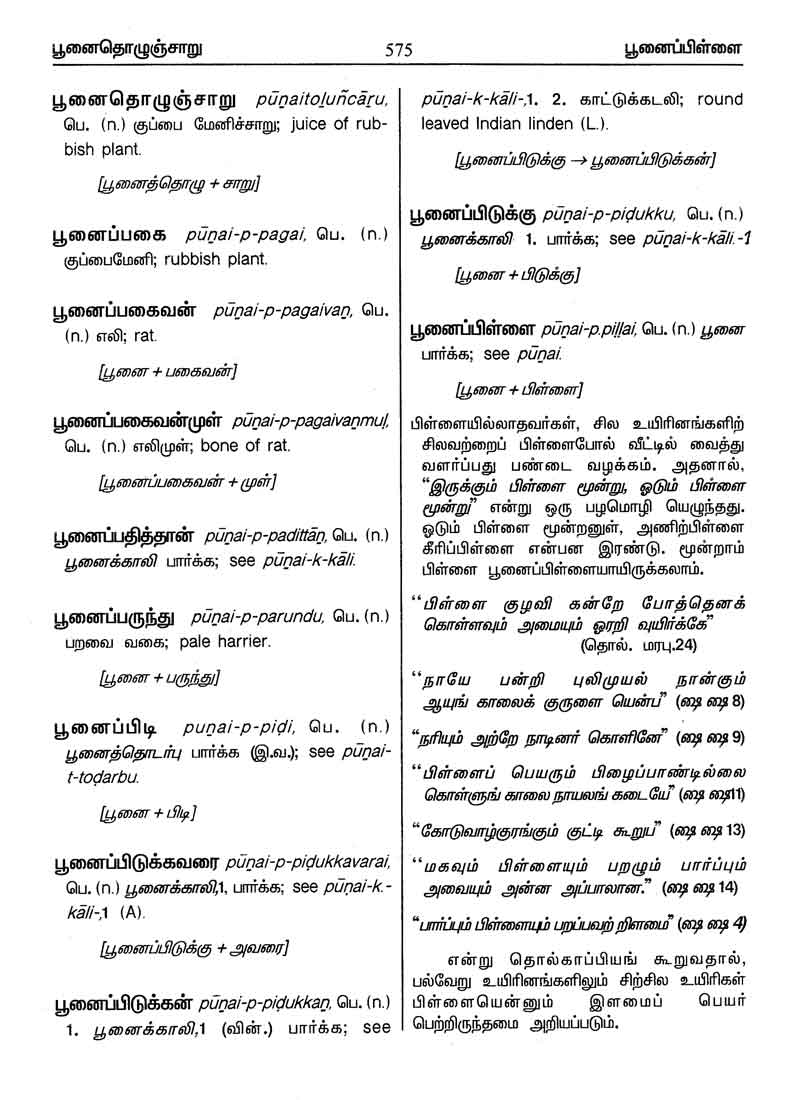 பூனைதொழுஞ்சாறு 575 பூனைப்பிள்ளை
பூனைதொழுஞ்சாறு pūṉaitoḻuñcāṟu,
பெ. (n.) குப்பை மேனிச்சாறு; juice of rub-
bish plant.
[பூனைத்தொழு + சாறு]
பூனைப்பகை pūṉai-p-pagai, பெ. (n.)
குப்பைமேனி; rubbish plant.
பூனைப்பகைவன் pūṉai-p-pagaivaṉ, பெ.
(n.) எலி; rat.
[பூனை + பகைவன்]
பூனைப்பகைவன்முள் pūṉai-p-pagaivaṉmuḷ,
பெ. (n.) எலிமுள்; bone of rat.
[பூனைப்பகைவன் + முள்]
பூனைப்பதித்தான் pūṉai-p-padittāṉ, பெ. (n.)
பூனைக்காலி பார்க்க; see pūṉai-k-kāli.
பூனைப்பருந்து pūṉai-p-parundu, பெ. (n.)
பறவை வகை; pale harrier.
[பூனை + பருந்து]
பூனைப்பிடி puṉai-p-piḍi, பெ. (n.)
பூனைத்தொடர்பு பார்க்க (இ.வ.); see pūṉai-
t-toḍarbu.
[பூனை + பிடி]
பூனைப்பிடுக்கவரை pūṉai-p-piḍukkavarai,
பெ. (n.) பூனைக்காலி,1, பார்க்க; see pūṉai-k.-
kāli-,1 (A).
[பூனைப்பிடுக்கு + அவரை]
பூனைப்பிடுக்கன் pūṉai-p-piḍukkaṉ, பெ. (n.)
1. பூனைக்காலி,1 (வின்.) பார்க்க; see
pūṉai-k-kāli-,1. 2. காட்டுக்கடலி; round
leaved Indian linden (L.).
[பூனைப்பிடுக்கு → பூனைப்பிடுக்கன்]
பூனைப்பிடுக்கு pūṉai-p-piḍukku, பெ. (n.)
பூனைக்காலி 1. பார்க்க; see pūṉai-k-kāli.-1
[பூனை + பிடுக்கு]
பூனைப்பிள்ளை pūṉai-p.piḷḷai, பெ. (n.) பூனை
பார்க்க; see pūṉai.
[பூனை + பிள்ளை]
பிள்ளையில்லாதவர்கள், சில உயிரினங்களிற்
சிலவற்றைப் பிள்ளைபோல் வீட்டில் வைத்து
வளர்ப்பது பண்டை வழக்கம். அதனால்,
“இருக்கும் பிள்ளை மூன்று, ஓடும் பிள்ளை
மூன்று” என்று ஒரு பழமொழி யெழுந்தது.
ஓடும் பிள்ளை மூன்றனுள், அணிற்பிள்ளை
கீரிப்பிள்ளை என்பன இரண்டு. மூன்றாம்
பிள்ளை பூனைப்பிள்ளையாயிருக்கலாம்.
“பிள்ளை குழவி கன்றே போத்தெனக்
கொள்ளவும் அமையும் ஓரறி வுயிர்க்கே”
(தொல். மரபு.24)
“நாயே பன்றி புலிமுயல் நான்கும்
ஆயுங் காலைக் குருளை யென்ப” (ஷை ஷை 8)
“நரியும் அற்றே நாடினர் கொளினே” (ஷை ஷை 9)
“பிள்ளைப் பெயரும் பிழைப்பாண்டில்லை
கொள்ளுங் காலை நாயலங் கடையே” (ஷை ஷை11)
“கோடுவாழ்குரங்கும் குட்டி கூறுப” (ஷை ஷை 13)
“மகவும் பிள்ளையும் பறழும் பார்ப்பும்
அவையும் அன்ன அப்பாலான.” (ஷை ஷை 14)
“பார்ப்பும் பிள்ளையும் பறப்பவற் றிளமை” (ஷை ஷை 4)
என்று தொல்காப்பியங் கூறுவதால்,
பல்வேறு உயிரினங்களிலும் சிற்சில உயிரிகள்
பிள்ளையென்னும் இளமைப் பெயர்
பெற்றிருந்தமை அறியப்படும்.